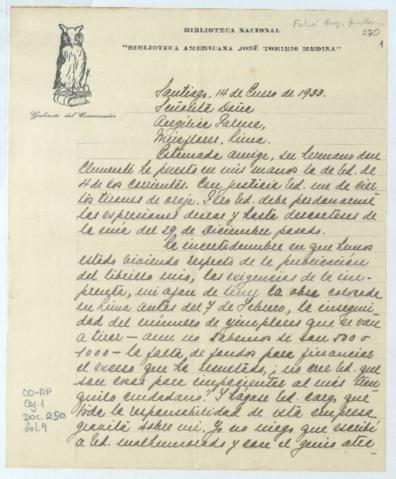 BIBLIOTECA NACIONAL
"BIBLIOTECA AMERICANA JOSÉ TORIBIO MEDINA"
270
1
Gabinete del Conservador
Santiago, 14 de Enero de 1933.
Señorita Doña
Angélica Palma,
Miraflores, Lima.
Estimada amiga, su hermano don
Clemente ha puesto en mis manos la de Ud. de
4 de los corrientes. Con justicia Ud. me da cier-
tos tirones de oreja. Pero Ud. debe perdonarme
las expresiones duras y hasta descorteses de
la mía del 29 de Diciembre pasado.
La incertidumbre en que hemos
estado viviendo respecto de la publicación
del librillo mío, las exigencias de la im-
prenta, mi afán de tener la obra colocada
en Lima antes del 7 de Febrero, la inseguri-
dad del número de ejemplares que se van
a tirar — aun no sabemos si son 500 o
1000 — la falta de fondos para financiar
el exceso que ha resultado, ¿no cree Ud. que
son cosas para impacientar al más tran-
quilo ciudadano? Y hágase Ud. cargo que
toda la responsabilidad de esta empresa
gravita sobre mí. Yo no niego que escribí
a Ud. malhumorado y con el genio
CO-AP
Caj. 1
Doc. 250
fol. 4